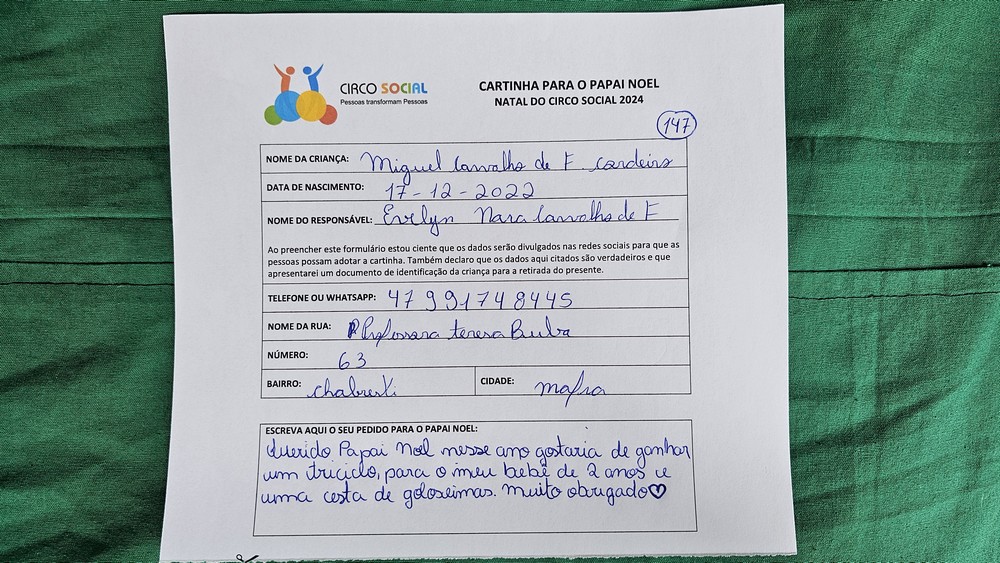 CIRCO SOCIAL
Pessoas transformam Pessoas
CARTINHA PARA O PAPAI NOEL
NATAL DO CIRCO SOCIAL 2024
147
NOME DA CRIANÇA: Miguel Carvalho de F. Cordeiro
DATA DE NASCIMENTO: 17-12-2022
NOME DO RESPONSÁVEL: Evelyn Nara Carvalho de F
Ao preencher este formulário estou ciente que os dados serão divulgados nas redes sociais para que as
pessoas possam adotar a cartinha. Também declaro que os dados aqui citados são verdadeiros e que
apresentarei um documento de identificação da criança para a retirada do presente.
TELEFONE OU WHATSAPP: 47 991748445
NOME DA RUA: Professora teresa
NÚMERO: 63
BAIRRO: CIDADE: mafra
ESCREVA AQUI O SEU PEDIDO PARA O PAPAI NOEL:
Querido Papai Noel nesse ano gostaria de ganhar
um triciclo, para o meu bebê de 2 anos e
uma cesta de goloseimas. Muito obrigado♡